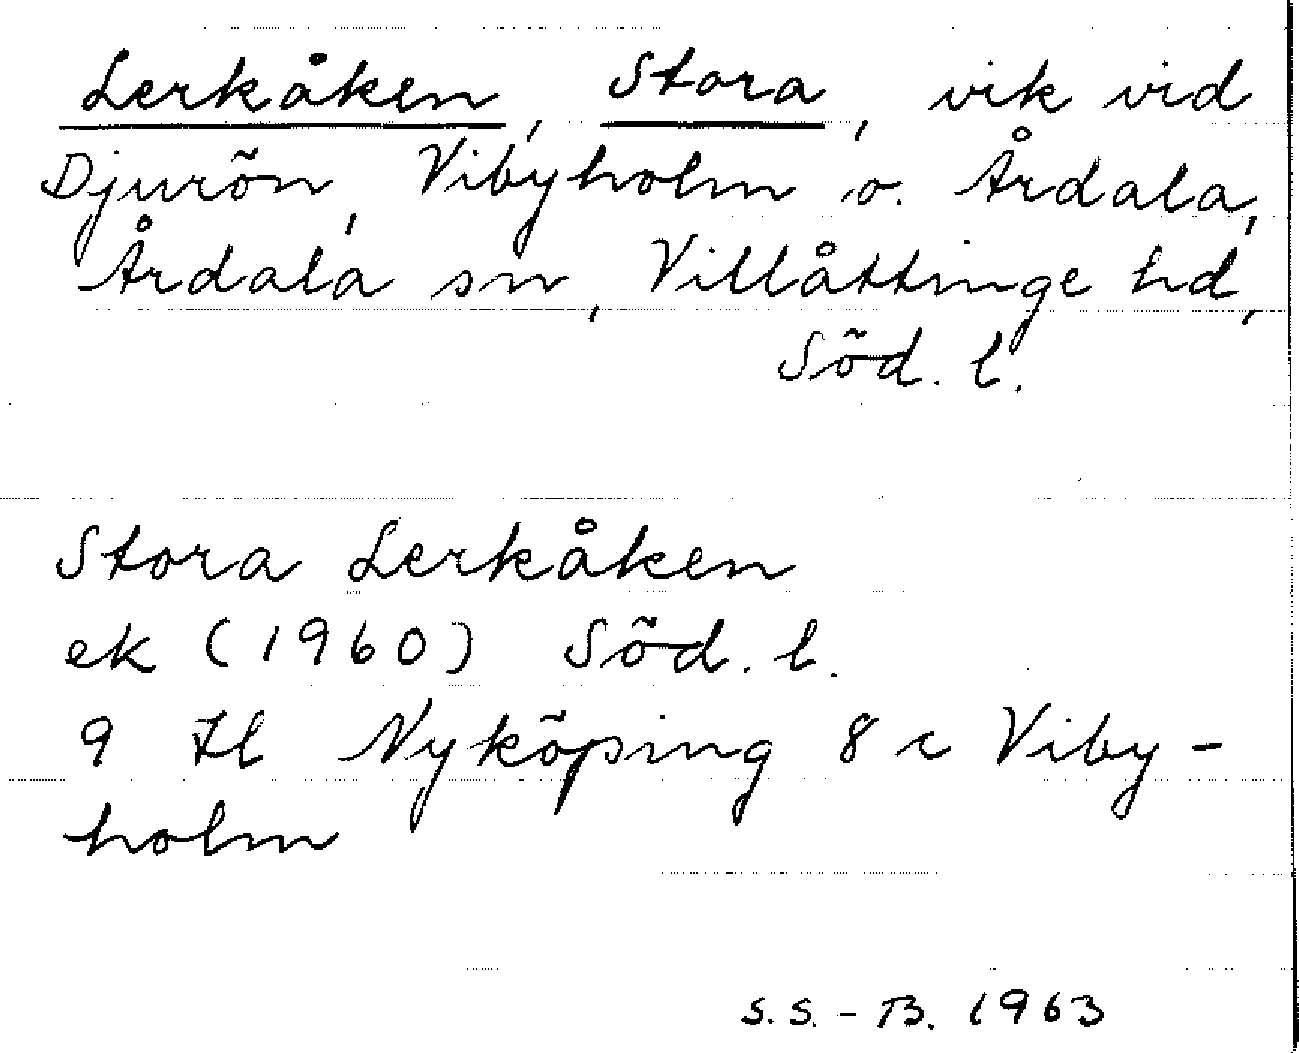 Lerkåken, Stora, vik vid
Djurön, Vibyholm o. Årdala,
Årdala sn, Villåttinge hd,
Söd. l.
Stora Lerkåken
ek (1960) Söd. l.
9 H Nyköping 8 c Viby-
holm
S.S.-B. 1963